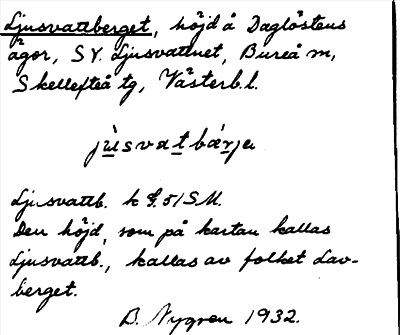 Ljusvattberget, höjd å Daglöstens
ägor, SV. Ljusvattnet, Bureå sn,
Skellefteå tg, Västerb. l.
jùsvatbärja
Ljusvattb. k 9. 51 S.U.
Den höjd, som på kartan kallas
Ljusvattb., kallas av folket Lav-
berget.
B. Nygren 1932.